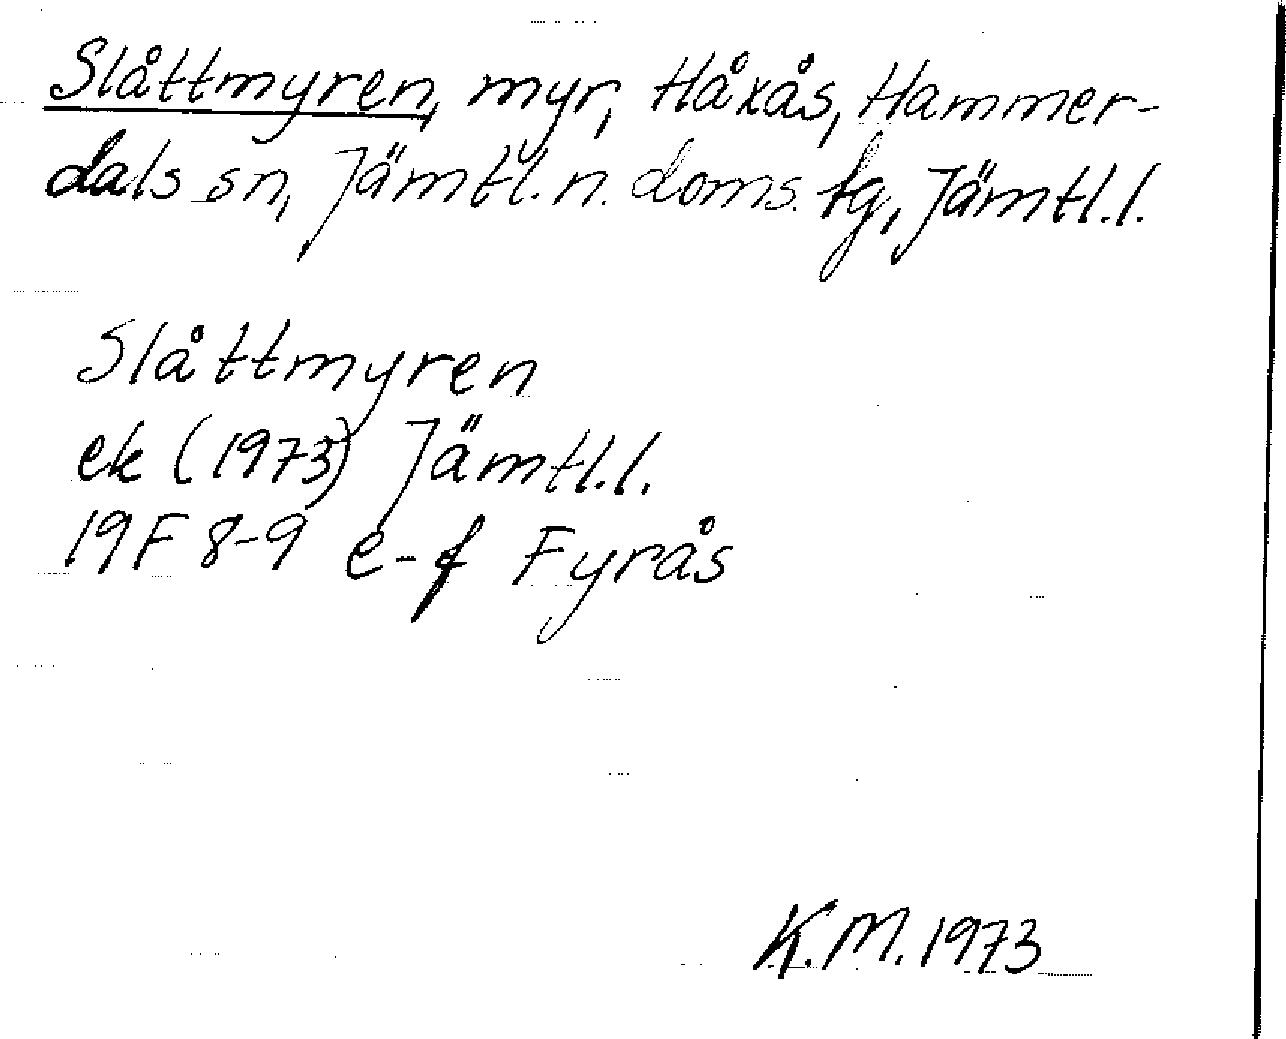 Slåttmyren, myr, Håxås, Hammer-
dals sn, Jämtl. n. doms. tg, Jämtl. l.
Slåttmyren
ek (1973) Jämtl. l.
19F 8-9 e-f Fyrås
K.M. 1973